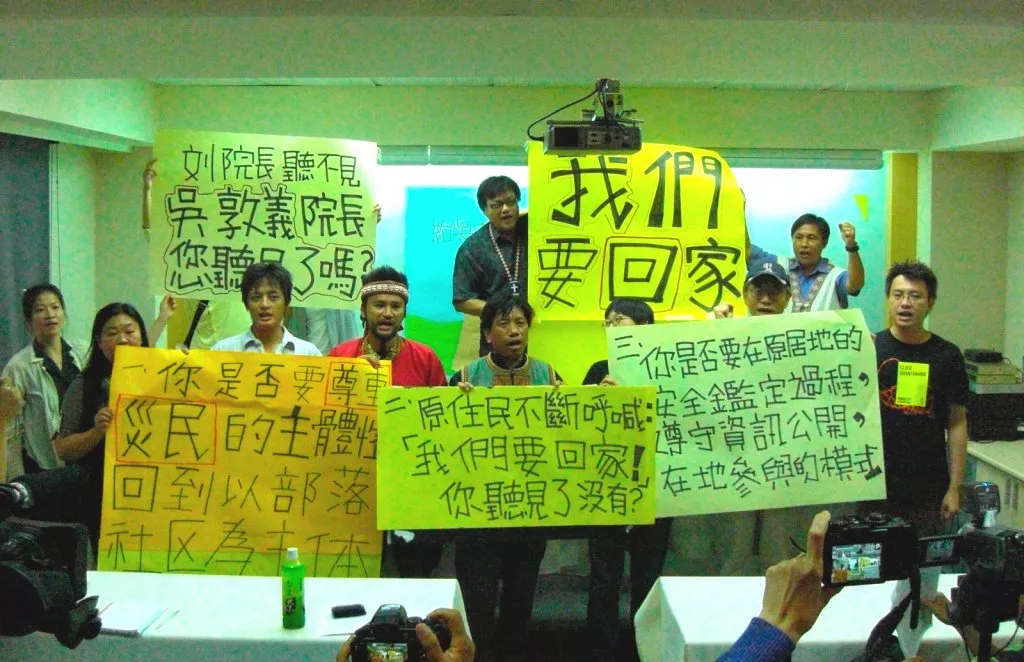 刘院長聽不見
吳敦義院長
您聽見了嗎?
我們
要回家
一、你是否要尊重
災民的主體性
回到以部落
社区為主体
二、原住民不斷呼喊:
「我們要回家!」
你聽見了沒有?
三、你是否要在原居地的
安全鑑定過程,
遵守資訊公開,
在地參與的模式
給吳
CLOSE
GUANTANAMO